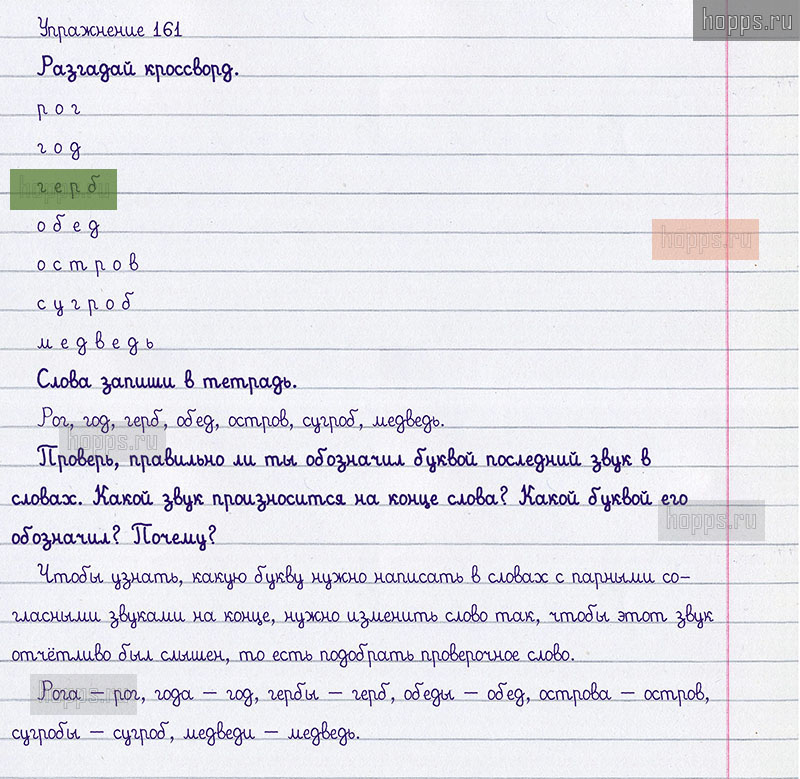 hopps.ru
Упражнение 161
Разгадай кроссворд.
р о г
г о д
г е р б
hopps.ru
о б е д
hopps.ru
о с т р о в
с у г р о б
м е д в е д ь
Слова запиши в тетрадь.
Рог, год, герб, обед, остров, сугроб, медведь.
hopps.ru
Проверь, правильно ли ты обозначил буквой последний звук в
словах. Какой звук произносится на конце слова? Какой буквой его
hopps.ru
обозначил? Почему?
Чтобы узнать, какую букву нужно написать в словах с парными со-
гласными звуками на конце, нужно изменить слово так, чтобы этот звук
отчётливо был слышен, то есть подобрать проверочное слово.
Рога – рог, года – год, гербы – герб, обеды – обед, острова – остров,
hopps.ru
сугробы – сугроб, медведи – медведь.